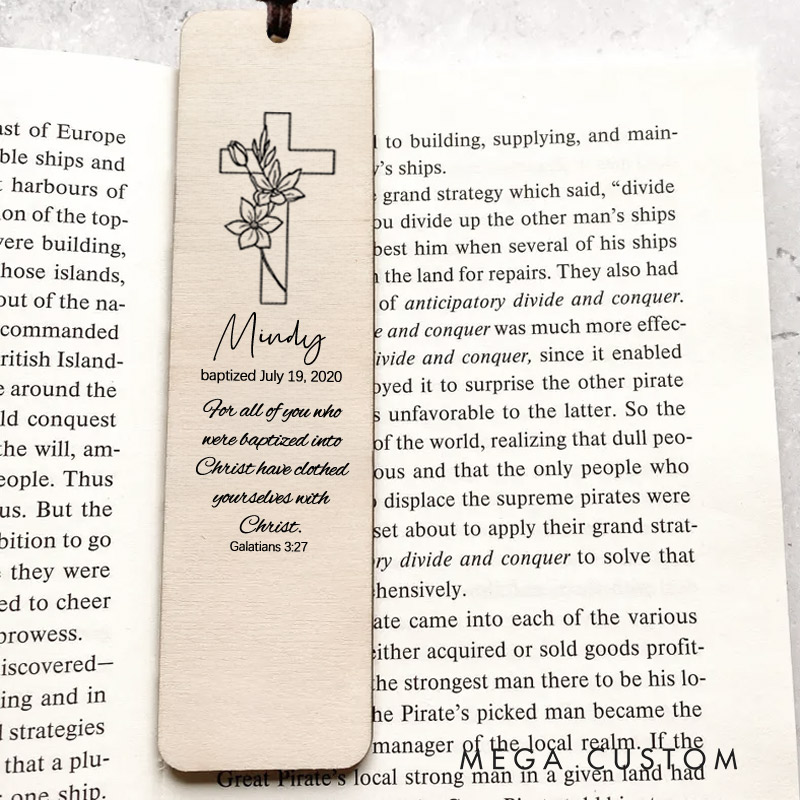 ast of Europe
ble ships and
harbours of
on of the top-
vere building,
hose islands,
out of the na-
commanded
ritish Island-
e around the
ld conquest
the will, am-
eople. Thus
us. But the
bition to go
they were
ed to cheer
prowess.
iscovered—
ing and in
l strategies
that a plu-
one ship.
Mindy
baptized July 19, 2020
For all of you who
were baptized into
Christ have clothed
yourselves with
Christ.
Galatians 3:27
to building, supplying, and main-
y's ships.
grand strategy which said, “divide
ou divide up the other man's ships
best him when several of his ships
the land for repairs. They also had
of anticipatory divide and conquer.
e and conquer was much more effec-
ivide and conquer, since it enabled
oyed it to surprise the other pirate
s unfavorable to the latter. So the
of the world, realizing that dull peo-
ous and that the only people who
displace the supreme pirates were
set about to apply their grand strat-
ry divide and conquer to solve that
hensively.
ate came into each of the various
either acquired or sold goods profit-
the strongest man there to be his lo-
he Pirate's picked man became the
manager of the local realm. If the
Great Pirate's local strong man in a given land had
MEGA CUSTOM